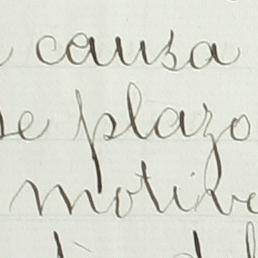 causa
se plazo
motivo